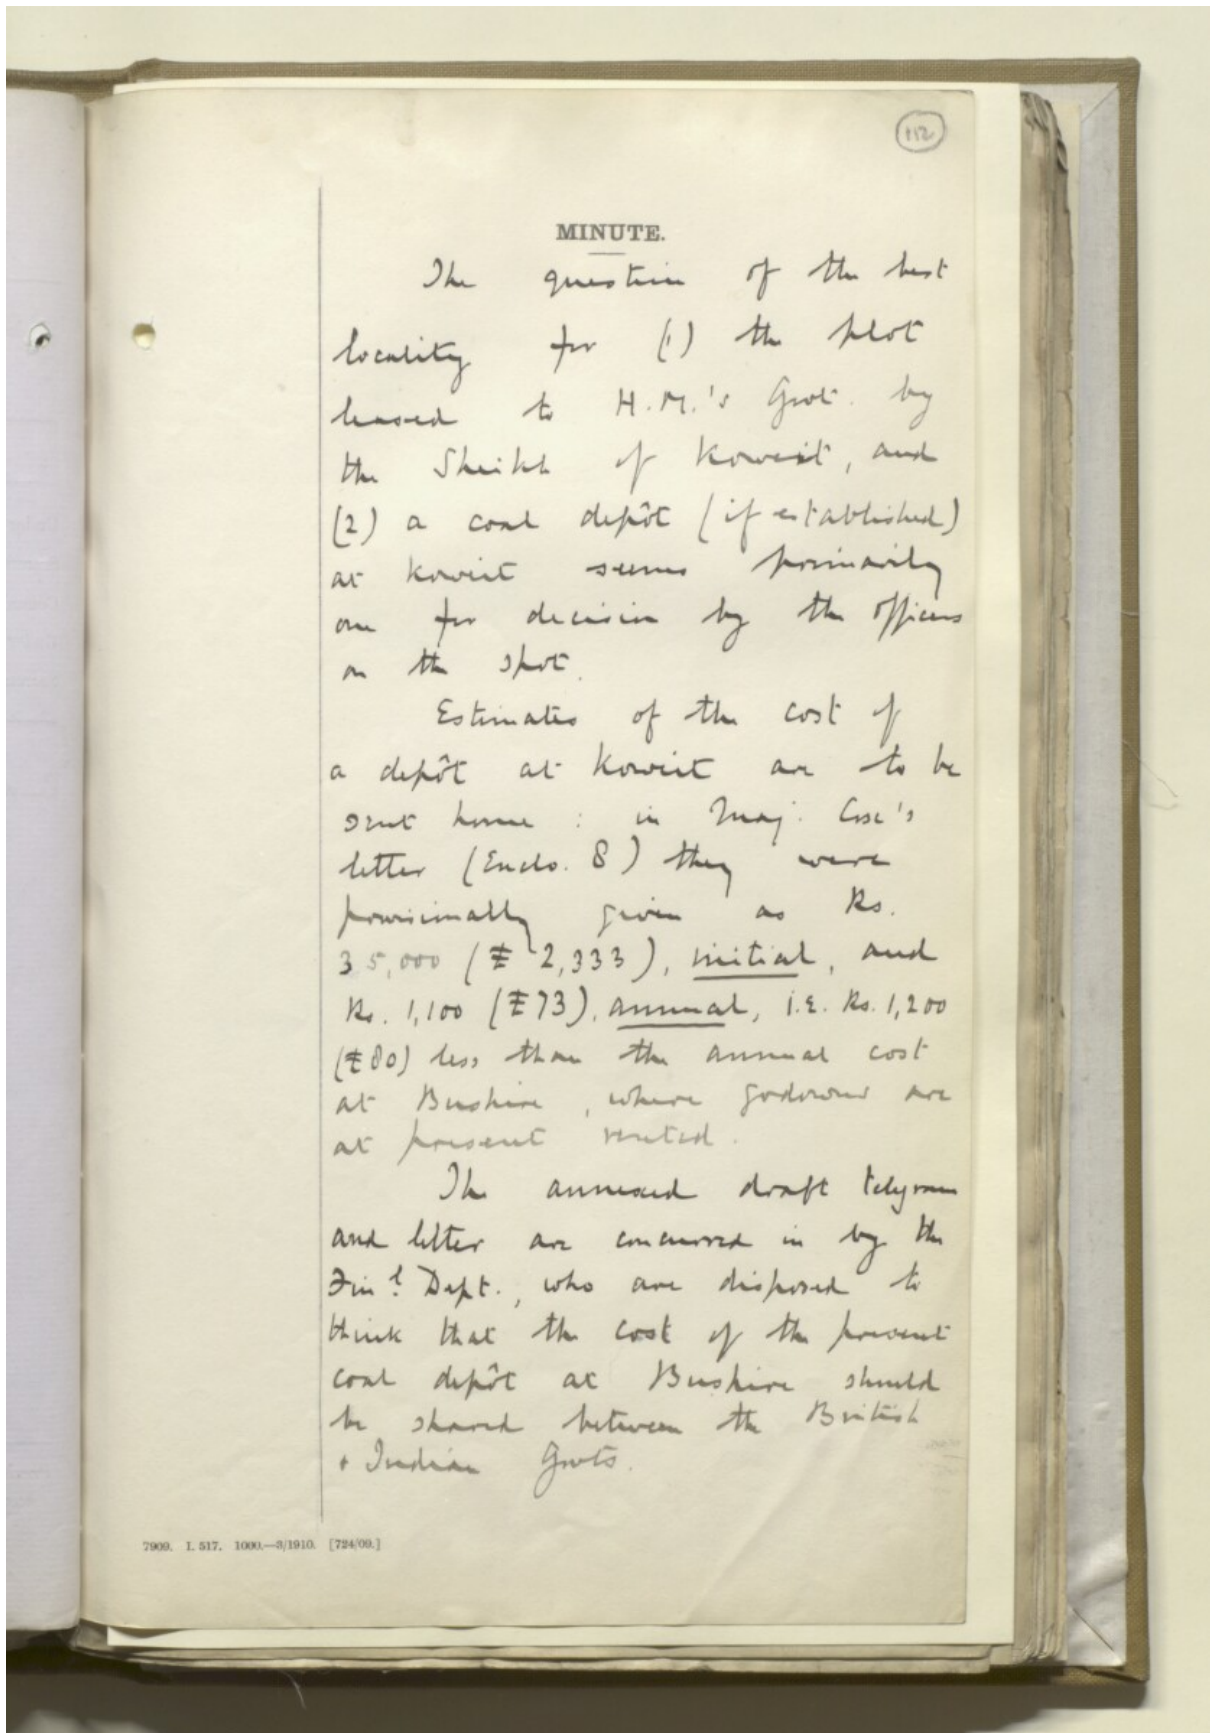 112
MINUTE.
The question of the best
locality for (1) the plot
leased to H.M.'s Govt. by
the Sheikh of Koweit, and
(2) a coal depôt (if established)
at Koweit seems primarily
one for decision by the officers
on the spot.
Estimates of the cost of
a depôt at Koweit are to be
sent home : in Maj. Cox's
letter (Enclo. 8) they were
provisionally given as Rs.
35,000 (£2,333), initial, and
Rs. 1,100 (£73), annual, i.e. Rs. 1,200
(£80) less than the annual cost
at Bushire, where godowns are
at present rented.
The annexed draft telegram
and letter are concurred in by the
Finl. Dept., who are disposed to
think that the cost of the present
coal depôt at Bushire should
be shared between the British
+ Indian Govts.
7909. I. 517. 1000.—3/1910. [724/09.]